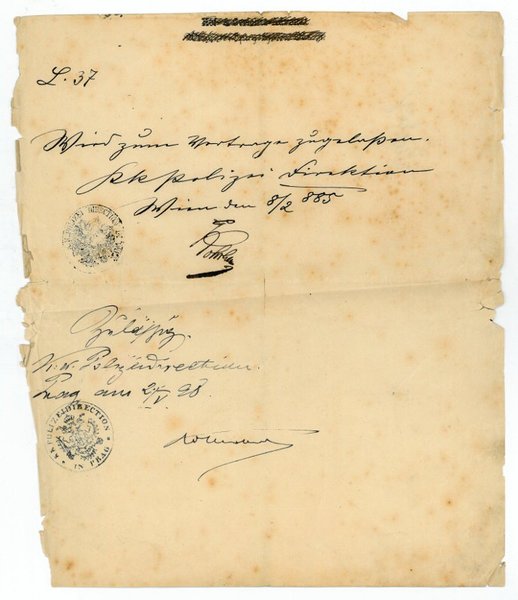 L. 37
Wird zum Vortrage zugelaßen.
KK Polizei Direktion
Wien den 8/2 885
Zulässig.
K. k. Polizeidirection.
Prag am 24/V 98.
KK POLIZEIDIRECTION IN PRAG